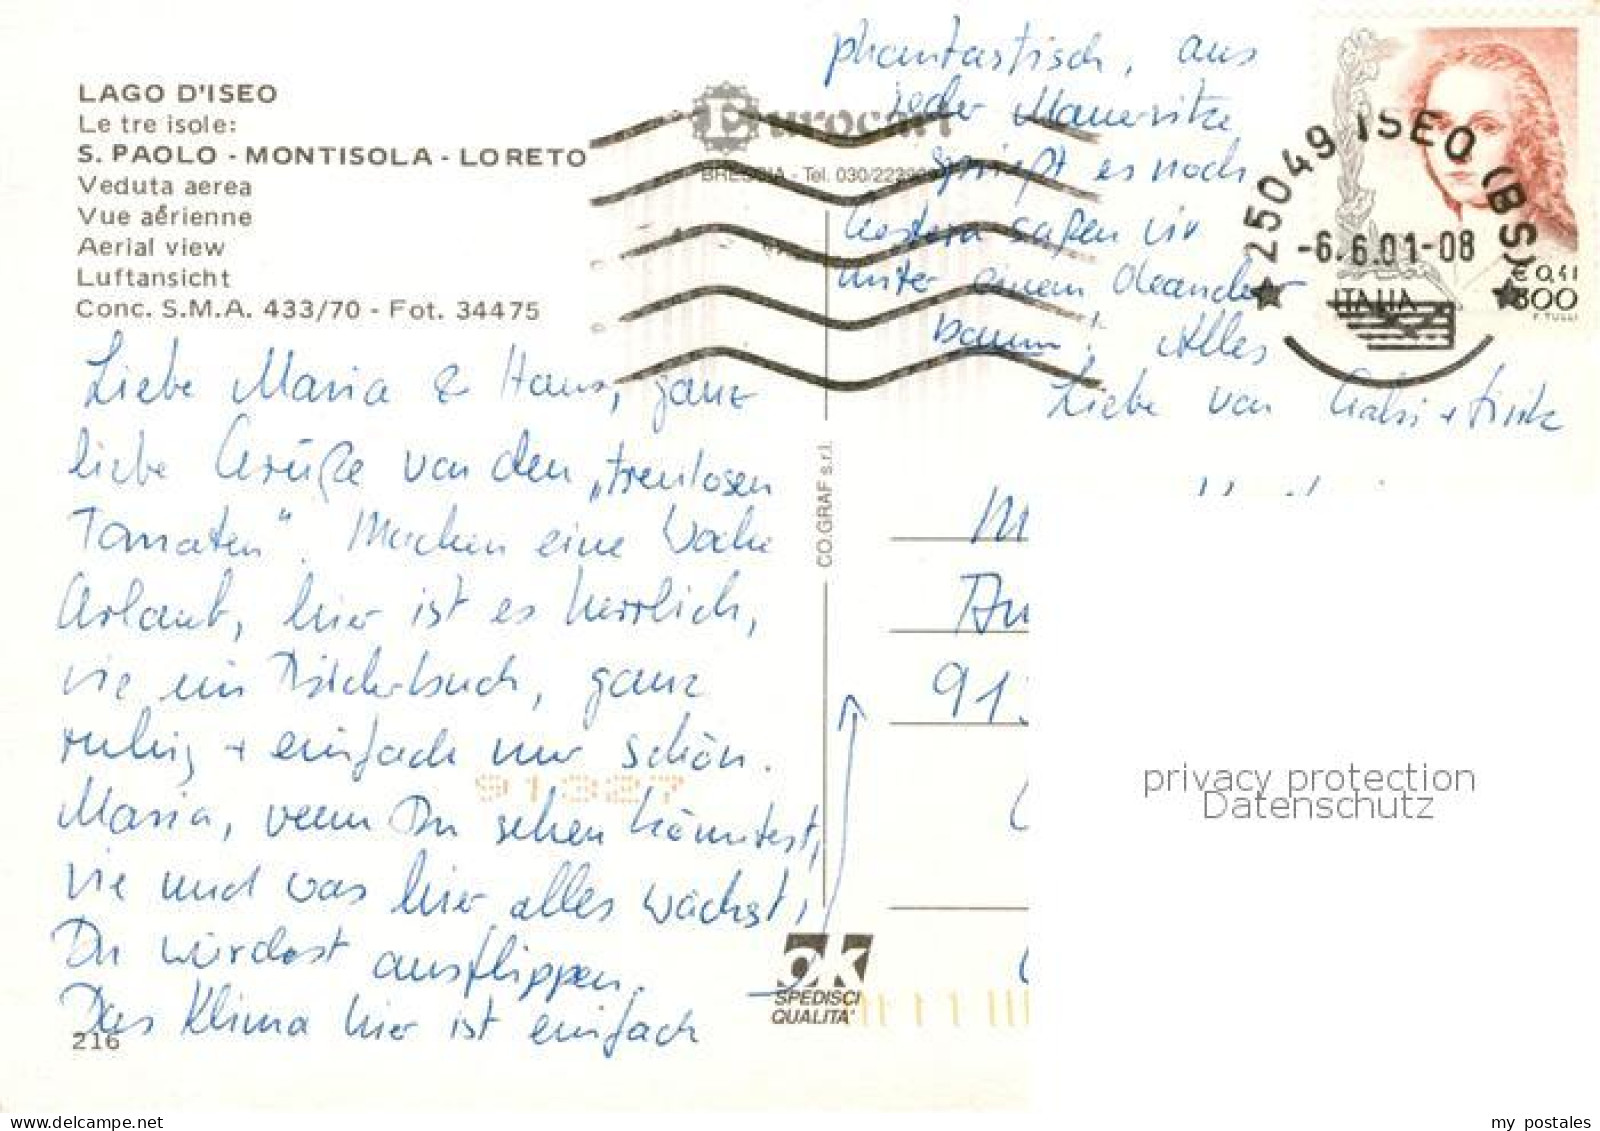 LAGO D'ISEO
Le tre isole:
S. PAOLO - MONTISOLA - LORETO
Veduta aerea
Vue aérienne
Aerial view
Luftansicht
Conc. S.M.A. 433/70 - Fot. 34475
Liebe Maria & Hans, ganz
liebe Grüße von den „treulosen
Tomaten". Machen eine Woche
Urlaub, hier ist es herrlich,
wie ein Bilderbuch, ganz
ruhig + einfach nur schön.
Maria, wenn Du sehen könntest,
wie und was hier alles wächst,
Du würdest ausflippen.
Das Klima hier ist einfach
216
91327
phantastisch, aus
jeder Mauerritze
sprießt es noch
Gestern saßen wir
unter einem Oleander
baum! Alles
Liebe von Gabi +
Eurocart
BRESCIA - Tel. 030/222
CO.GRAF s.r.l.
OK
SPEDISCI
QUALITA'
25049 ISEO (BS)
-6.6.01-08
ITALIA
€ 0,41
800
F. TULLI
M
Au
91
privacy protection
Datenschutz
www.delcampe.net
my_postales